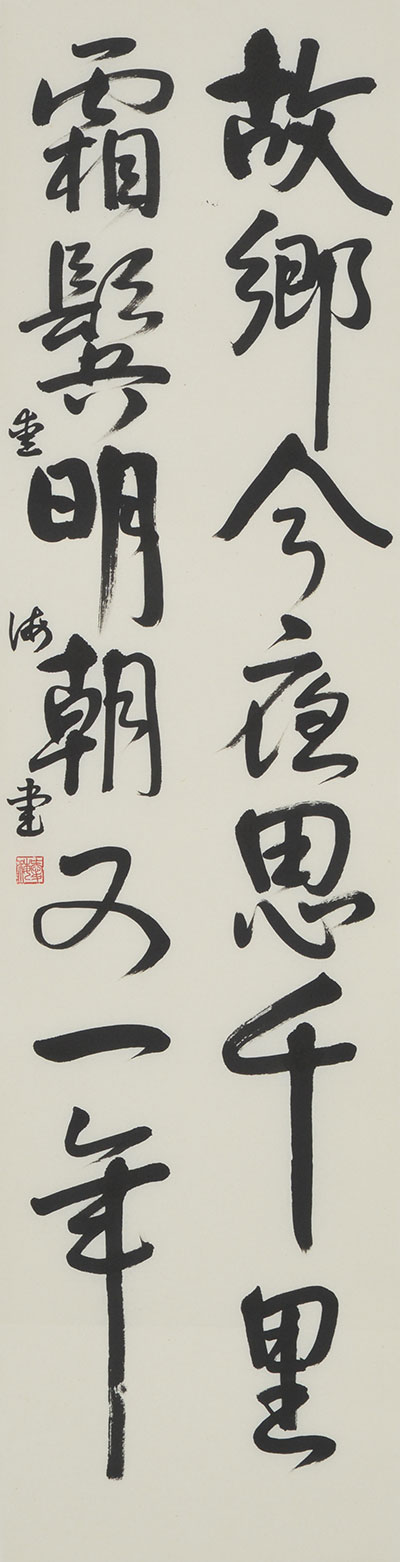 故鄉今夜思千里
霜鬢明朝又一年
海